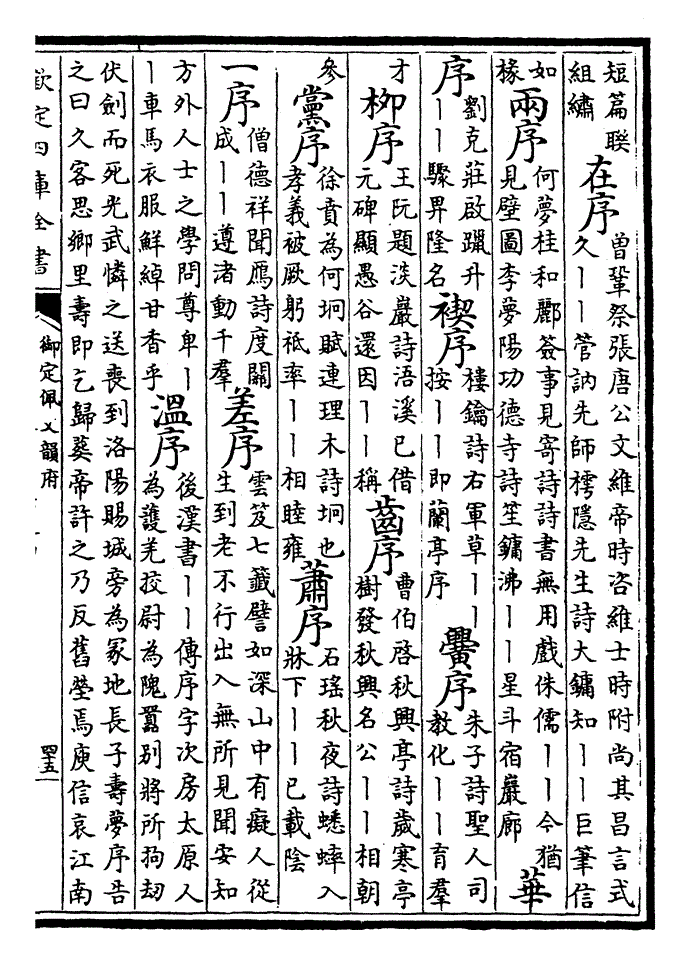 短篇聯
組繡
在序
曽鞏祭張唐公文維帝時咨維士時附尚其昌言式
久丨丨管訥先師樗隱先生詩大鏞知丨丨巨筆信
如
椽
兩序
何夢桂和酈簽事見寄詩詩書無用戲侏儒丨丨今猶
見壁圖李夢陽功德寺詩笙鏞沸丨丨星斗宿巖廊
華
序
劉克莊啟躐升
丨丨驟畀隆名
禊序
樓鑰詩右軍草丨丨
按丨丨即蘭亭序
黌序
朱子詩聖人司
教化丨丨育羣
才
柳序
王阮題淡巖詩浯溪已借
元碑顯愚谷還因丨丨稱
齒序
曹伯啓秋興亭詩歲寒亭
樹發秋興名公丨丨相朝
參
黨序
徐賁為何坰賦連理木詩坰也
孝義被厥躬祗率丨丨相睦雍
蕭序
石瑤秋夜詩蟋蟀入
牀下丨丨已載陰
一序
僧德祥聞鴈詩度關
成丨丨遵渚動千羣
差序
雲笈七籤譬如深山中有癡人從
生到老不行出入無所見聞安知
方外人士之學問尊卑丨
丨車馬衣服鮮綽甘香乎
溫序
後漢書丨丨傳序字次房太原人
為護羌挍尉為隗囂别將所拘劫
伏劍而死光武憐之送喪到洛陽賜城旁為冢地長子壽夢序告
之曰久客思鄉里壽即乞歸葬帝許之乃反舊塋焉庾信哀江南
欽定四庫全書
御定佩文韻府
四五